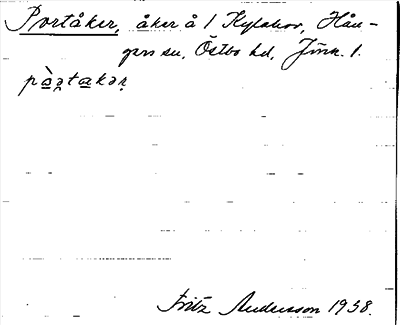 Portåker, åker å 1 Kylahov, Hån-
gers sn, Östbo hd, Jönk. l.
pàrtakər
Fritz Andersson 1938.